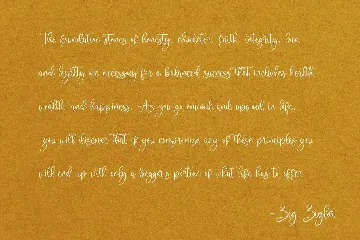 "The foundation stones of honesty, character, faith, integrity, love
and loyalty are necessary for a balanced success that includes health,
wealth, and happiness. As you go onward and upward in life,
you will discover that if you compromise any of these principles you
will end up with only a beggar's portion of what life has to offer.
-Zig Ziglar